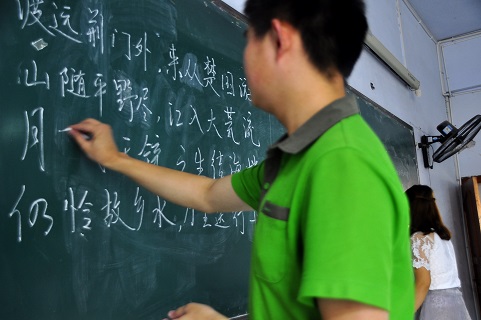 渡远荆门外,来从楚国游
山随平野尽,江入大荒流
月 天镜 生结海
仍怜故乡水,万里送行